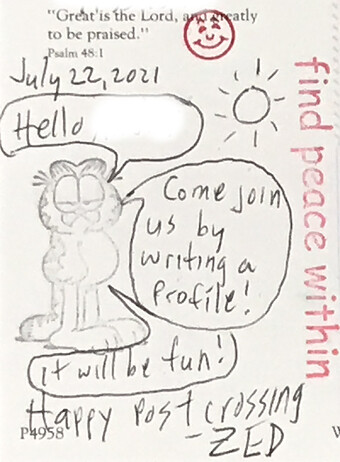 "Great is the Lord, and greatly
to be praised."
Psalm 48:1
July 22, 2021
Hello
Come join
us by
writing a
Profile!
it will be fun!
Happy Postcrossing
P4958
-ZED
find peace within